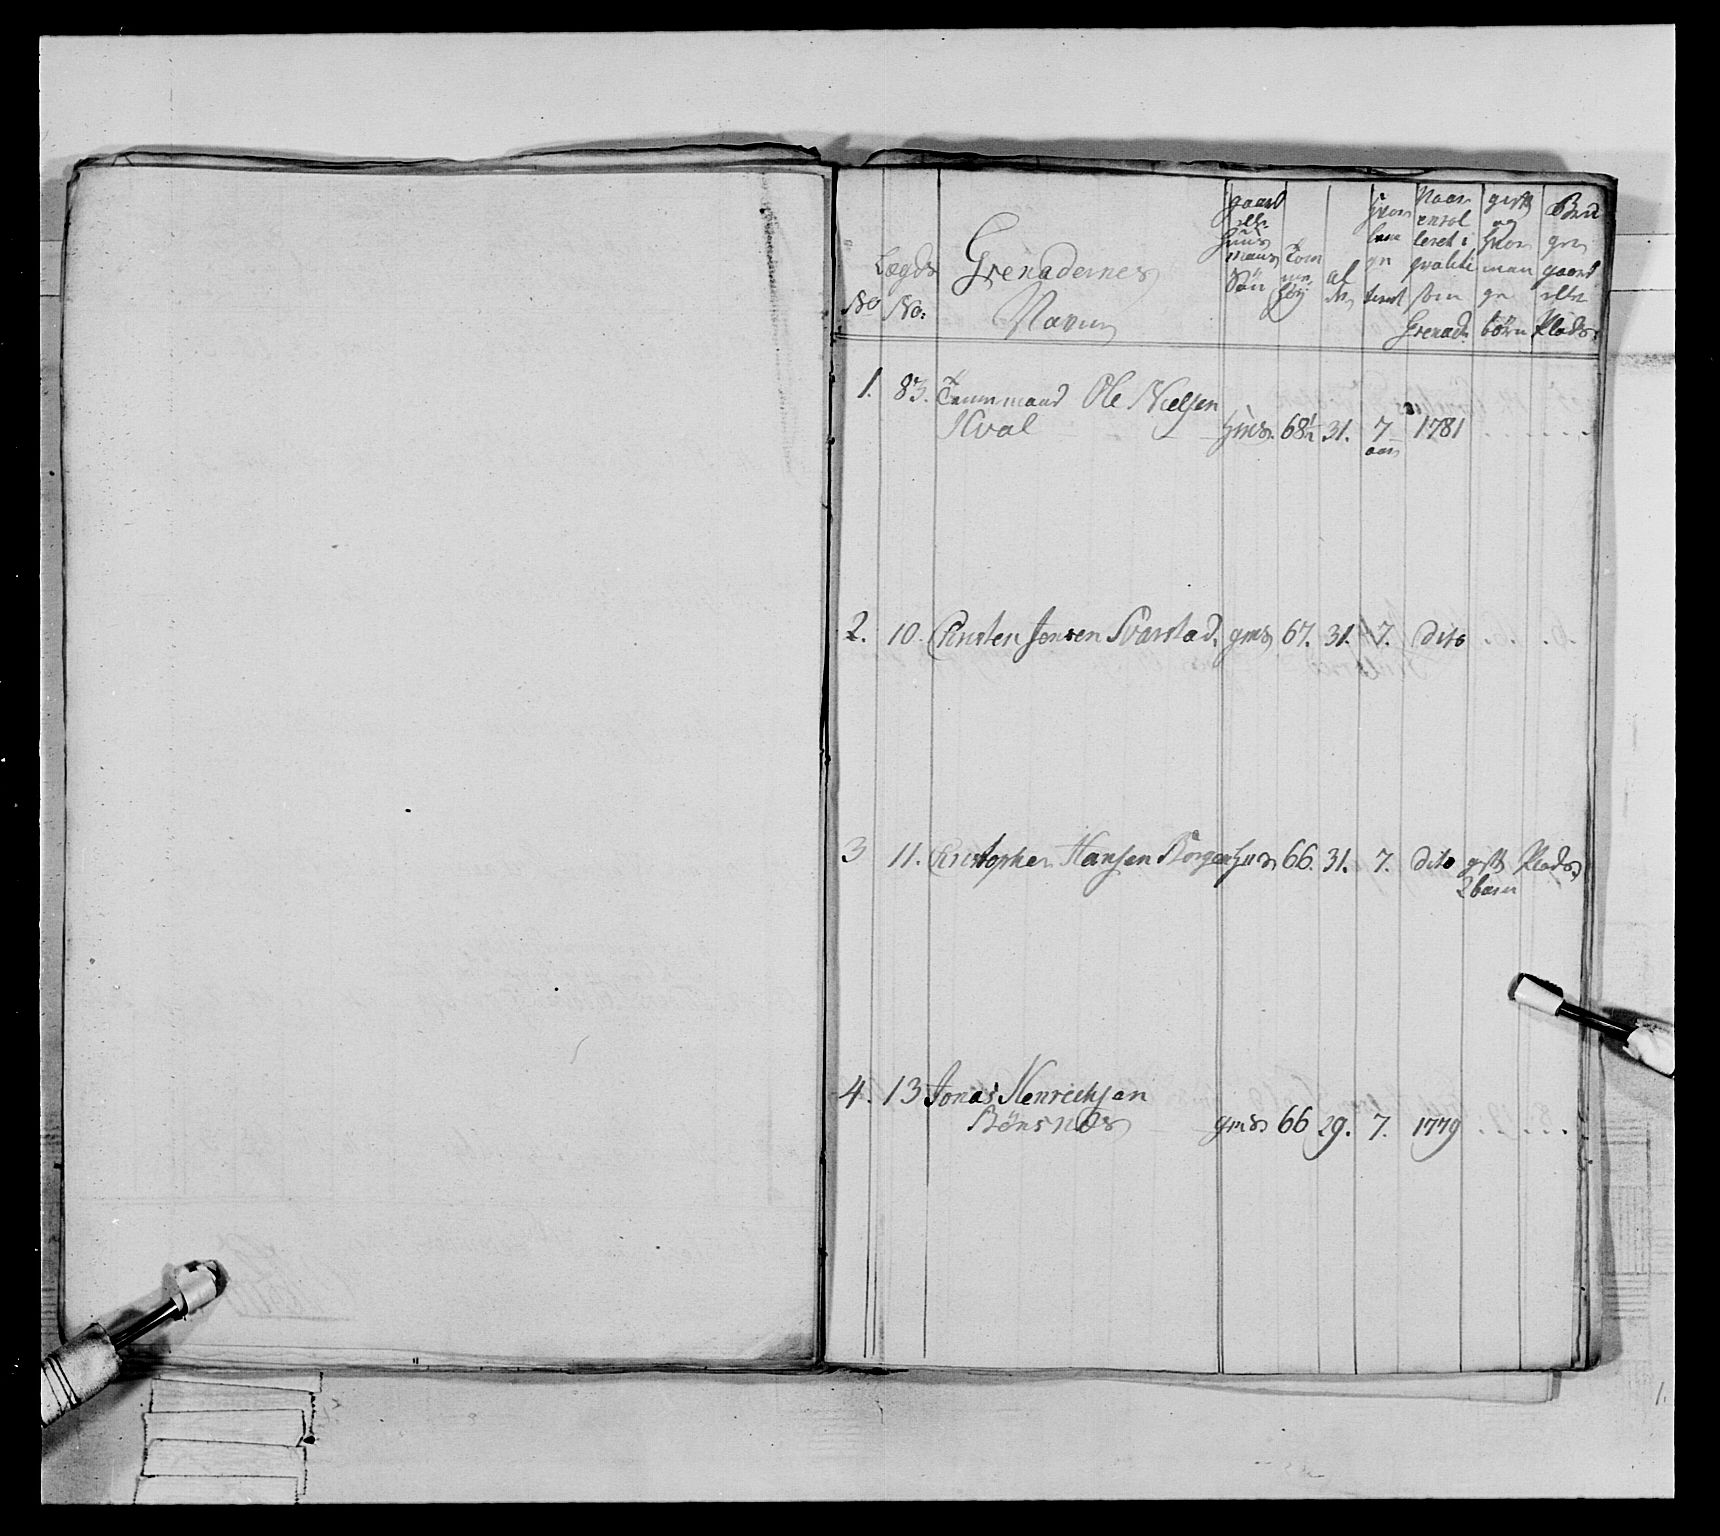 No
Lægds No:
Grenadernes Navne
gaard eller Huus mans Søn
Tom me Høy
al der
Hvor læn ge tient
Naar enrol leret i qvaliti som Grenad:
gift og Hvor man ge børn
Bru ger gaard eller Plads
1. 83. Tømmermand Ole Nielsen
Hval hms. 68½ 31. 7 aar 1781
2. 10. Christen Jensen Svarstad. gms 67. 31. 7. dito
3 11. Christopher Hansen Borgen hms 66. 31. 7. dito gift Plads.
2 børn
4. 13 Jonas Henrichsen
Bønsnæs gms 66 29. 7. 1779